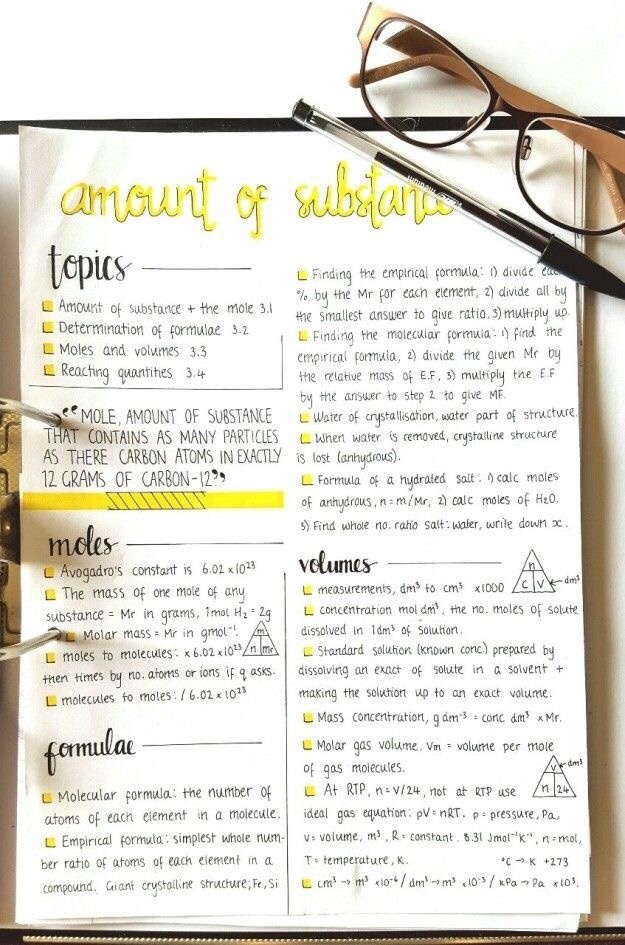 amount of substance
topics
Amount of substance + the mole 3.1
Determination of formulae 3.2
Moles and volumes 3.3
Reacting quantities 3.4
“MOLE, AMOUNT OF SUBSTANCE
THAT CONTAINS AS MANY PARTICLES
AS THERE CARBON ATOMS IN EXACTLY
12 GRAMS OF CARBON-12”
moles
Avogadro's constant is 6.02 x 10²³
The mass of one mole of any
substance = Mr in grams, 1mol H₂ = 2g
Molar mass = Mr in gmol⁻¹.
moles to molecules: x 6.02 x10²³
m
n mr
then times by no. atoms or ions if q asks.
molecules to moles: / 6.02 x 10²³
formulae
Molecular formula: the number of
atoms of each element in a molecule.
Empirical formula: simplest whole num-
ber ratio of atoms of each element in a
compound. Giant crystalline structure; Fe, Si
Finding the empirical formula: 1) divide
% by the Mr for each element, 2) divide all by
the smallest answer to give ratio, 3) multiply up.
Finding the molecular formula: 1) find the
empirical formula, 2) divide the given Mr by
the relative mass of E.F, 3) multiply the E.F
by the answer to step 2 to give MF.
Water of crystallisation, water part of structure.
When water is removed, crystalline structure
is lost (anhydrous).
Formula of a hydrated salt: 1) calc moles
of anhydrous, n = m/Mr, 2) calc moles of H₂O.
3) Find whole no. ratio salt: water, write down x.
volumes
n
C V dm³
measurements, dm³ to cm³ x1000
concentration mol dm³, the no. moles of solute
dissolved in 1dm³ of solution.
Standard solution (known conc.) prepared by
dissolving an exact of solute in a solvent +
making the solution up to an exact volume.
Mass concentration, g dm⁻³ = conc dm³ x Mr.
Molar gas volume, Vm = volume per mole
of gas molecules.
V dm³
n 24
At RTP, n = V/24, not at RTP use
ideal gas equation: pV = nRT. p = pressure, Pa,
V = volume, m³, R = constant. 8.31 Jmol⁻¹K⁻¹, n = mol,
T = temperature, K. °C → K +273
cm³ → m³ x10⁻⁶ / dm³ → m³ x10⁻³ / kPa → Pa x 10³.